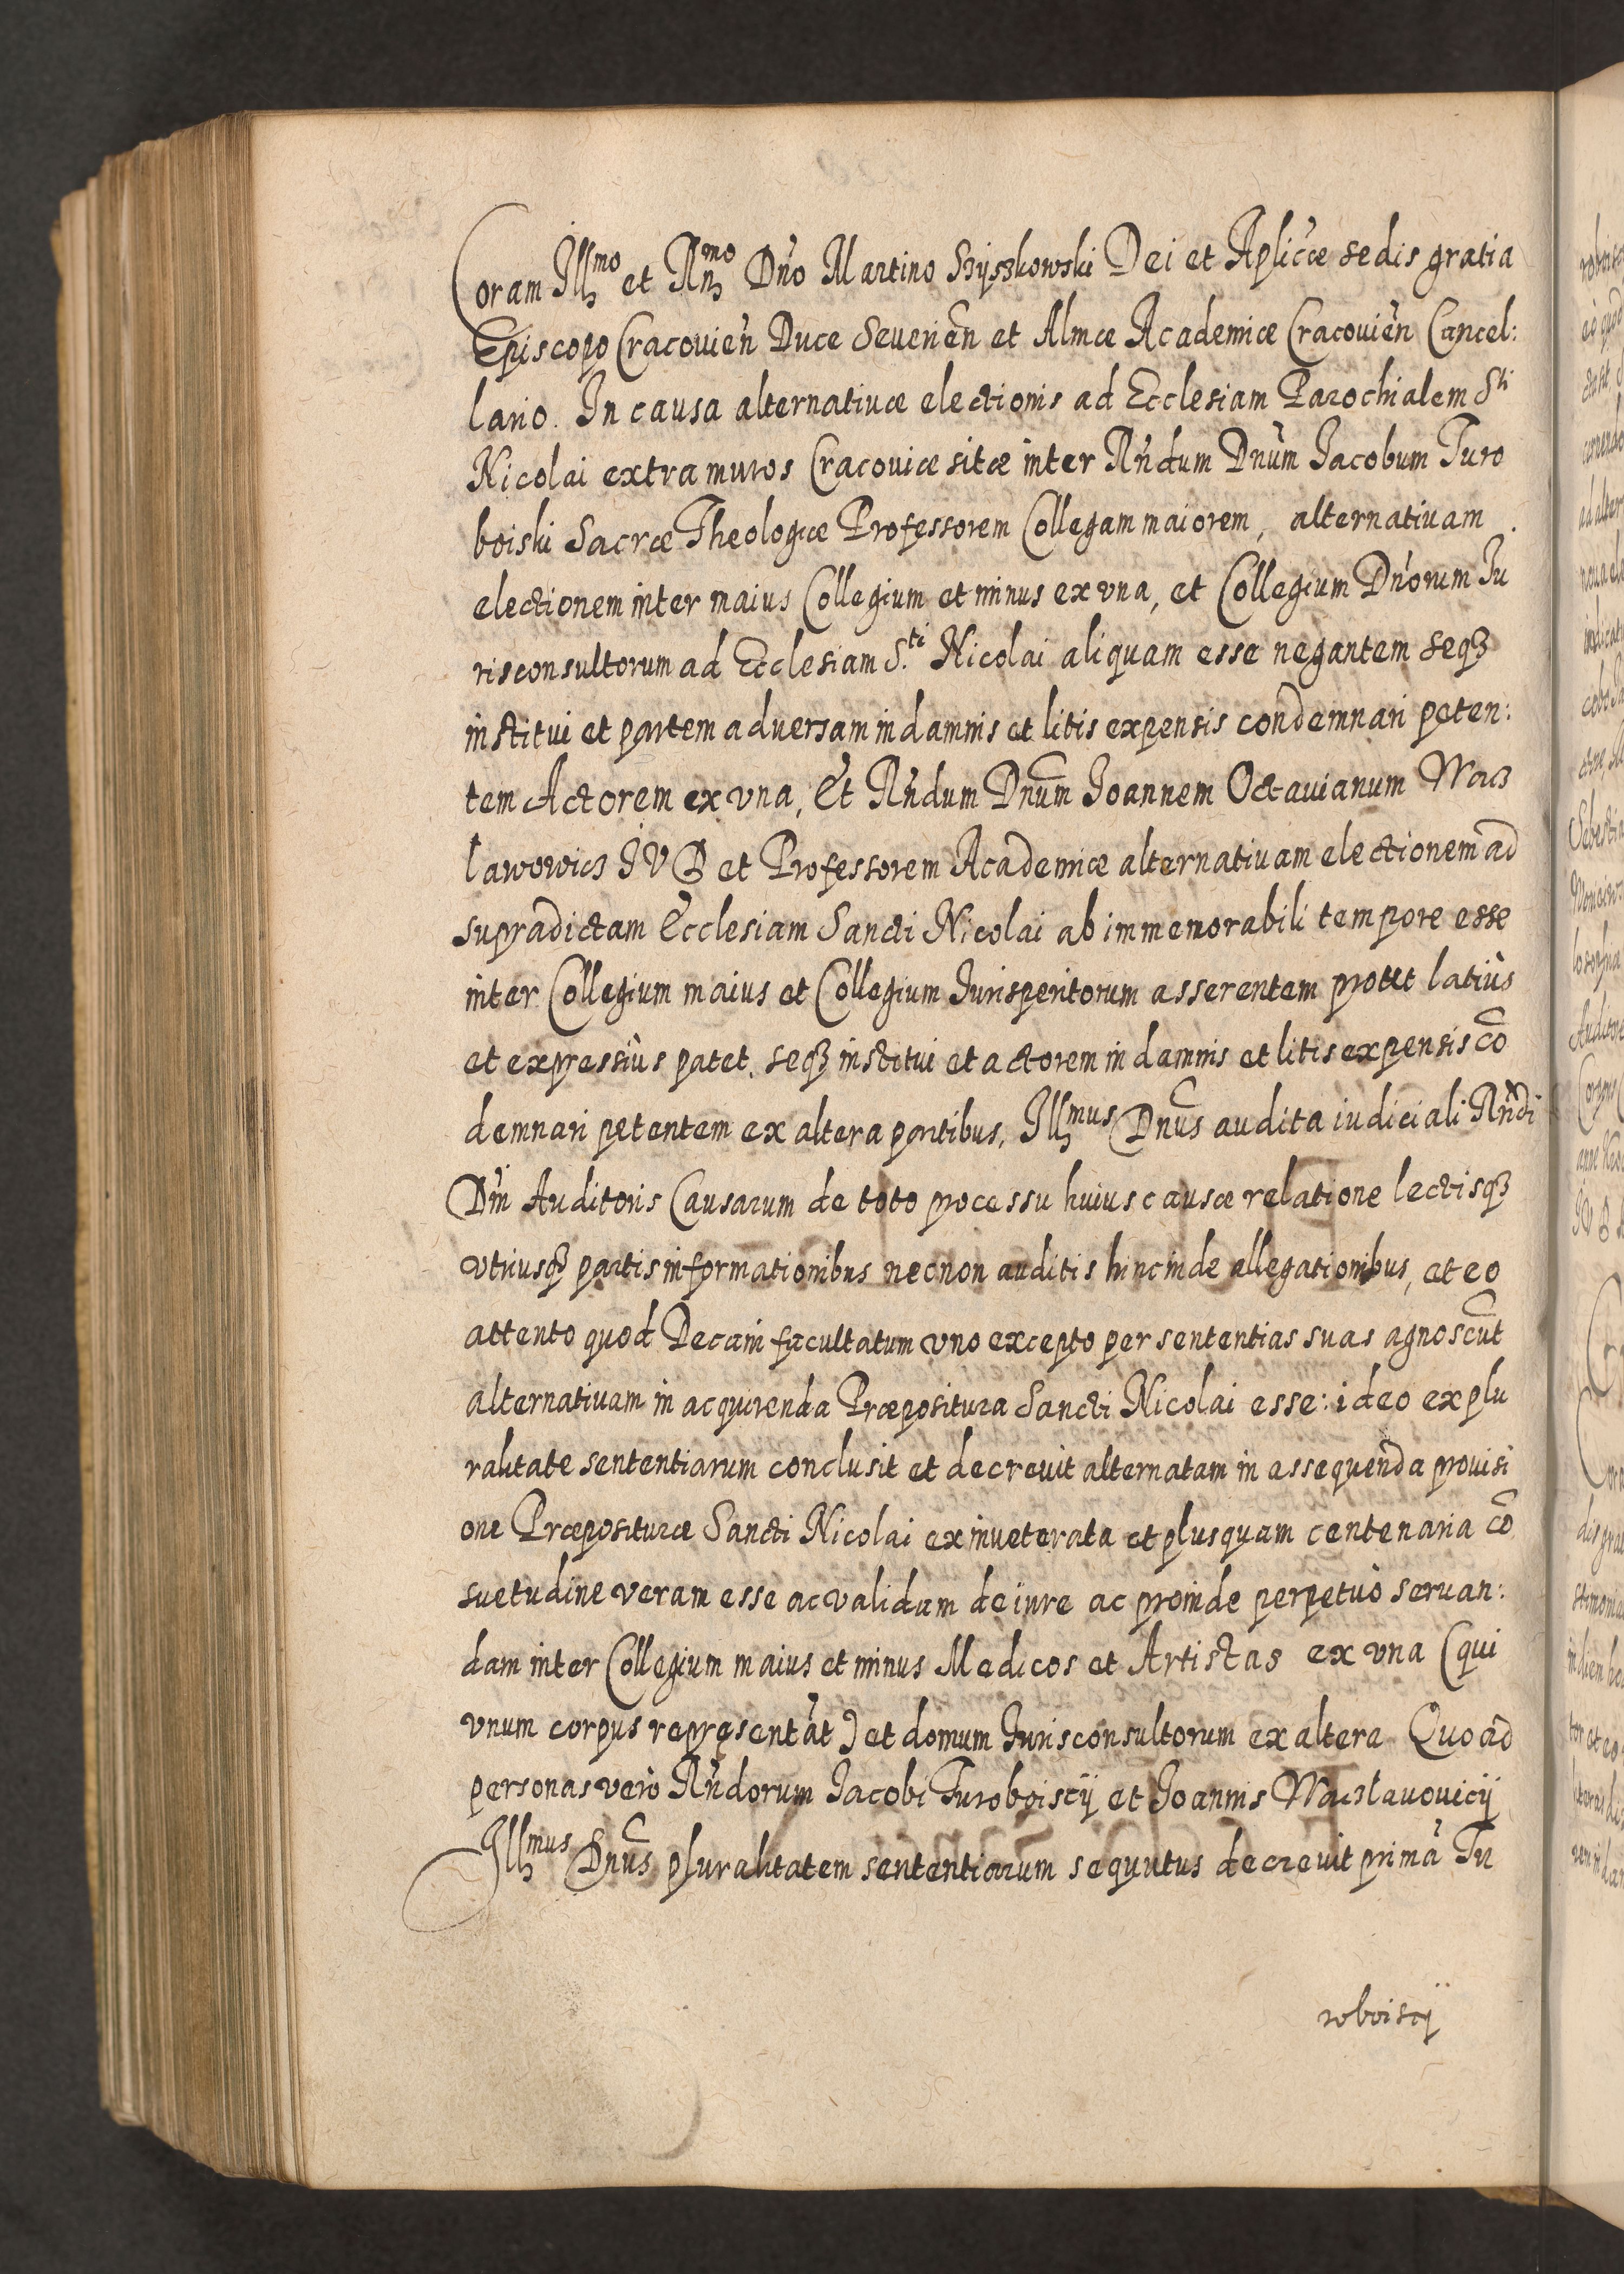 Coram Illmo et Rnmo Dno Martino Szyszkowski Dei et Aplicæ sedis gratia
Episcopo Cracouien Duce Seuerien et Almæ Academiæ Cracouien Cancel:
lario. In causa alternatiuæ electionis ad Ecclesiam Parochialem Sti
Nicolai extra muros Cracouiæ sitæ inter Rndum Dnum Jacobum Turo
boiski Sacræ Theologiæ Professorem Collegam maiorem, alternatiuam
electionem inter maius Collegium et minus ex vna, et Collegium Dnorum Ju
risconsultorum ad Ecclesiam S.ti Nicolai aliquam esse negantem seqз
institui et partem aduersam in damnis et litis expensis condemnari peten:
tem Actorem ex vna, Et Rndum Dnum Joannem Octauianum Wacz
lawowicz JVD et Professorem Academiæ alternatiuam electionem ad
supradictam Ecclesiam Sancti Nicolai ab immemorabili tempore esse
inter Collegium maius et Collegium Jurisperitorum asserentem prout latiùs
et expressiùs patet, seqз institui et actorem in damnis et litis expensis cō
demnari petentem ex altera partibus, Illmus Dnus audita iudiciali Rndi
Dni Auditoris Causarum de toto processu huius causæ relatione lectisqз
vtriusqз partis informationibus necnon auditis hincinde allegationibus, et eo
attento quod Decani facultatum vno excepto per sententias suas agnoscūt
alternatiuam in acquirenda Præpositura Sancti Nicolai esse: ideo ex plu
ralitate sententiarum conclusit et decreuit alternatam in assequenda prouisi
one Præposituræ Sancti Nicolai ex inueterata et plusquam centenaria cō
suetudine veram esse ac validam de iure ac proinde perpetuò seruan:
dam inter Collegium maius et minus Medicos et Artistas ex vna (qui
vnum corpus repręsentāt) et domum Jurisconsultorum ex altera Quo ad
personas verò Rndorum Jacobi Turoboiscÿ et Joannis Waczlauouicÿ
Illmus Dnus pluralitatem sententiarum sequutus decreuit primā Tu
roboiscÿ